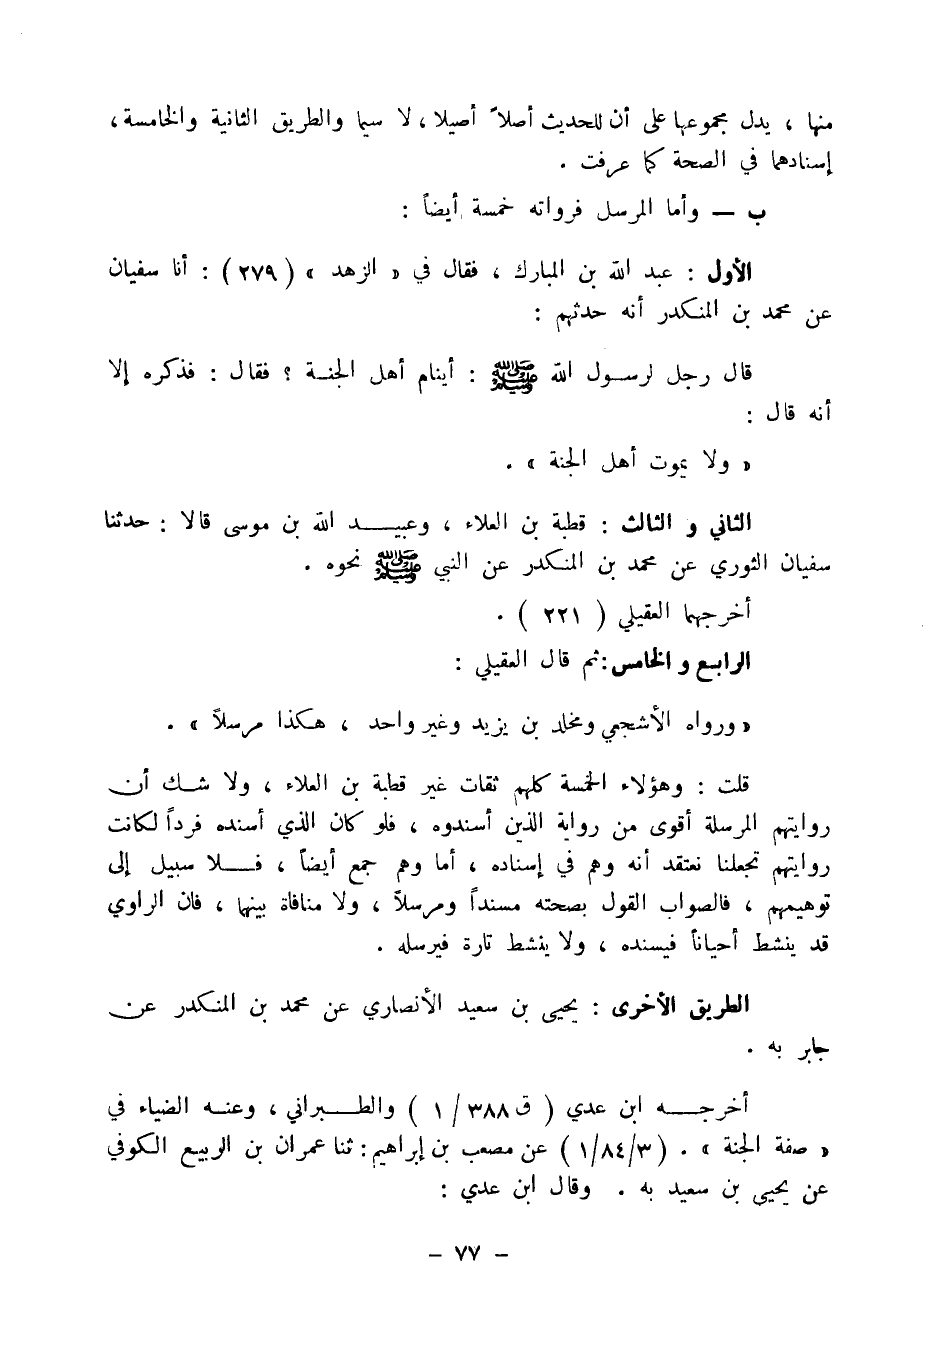 منها ، يدل مجموعها على أن للحديث أصلاً أصيلا ، لا سيما والطريق الثانية والخامسة ،
إسنادهما في الصحة كما عرفت .
ب – وأما المرسل فرواته خمسة أيضاً :
الأول : عبد الله بن المبارك ، فقال في « الزهد » ( ٢٧٩ ) : أنا سفيان
عن محمد بن المنكدر أنه حدثهم :
قال رجل لرسول الله ﷺ : أينام أهل الجنة ؟ فقال : فذكره إلا
أنه قال :
« ولا يموت أهل الجنة » .
الثاني و الثالث : قطبة بن العلاء ، وعبيد الله بن موسى قالا : حدثنا
سفيان الثوري عن محمد بن المنكدر عن النبي ﷺ نحوه .
أخرجهما العقيلي ( ٢٢١ ) .
الرابع و الخامس : ثم قال العقيلي :
« ورواه الأشجعي ومخلد بن يزيد وغير واحد ، هكذا مرسلاً » .
قلت : وهؤلاء الخمسة كلهم ثقات غير قطبة بن العلاء ، ولا شك أن
روايتهم المرسلة أقوى من رواية الذين أسندوه ، فلو كان الذي أسنده فرداً لكانت
روايتهم تجعلنا نعتقد أنه وهم في إسناده ، أما وهم جمع أيضاً ، فلا سبيل إلى
توهيمهم ، فالصواب القول بصحته مسنداً ومرسلاً ، ولا منافاة بينها ، فان الراوي
قد ينشط أحياناً فيسنده ، ولا ينشط تارة فيرسله .
الطريق الأخرى : يحيى بن سعيد الأنصاري عن محمد بن المنكدر عن
جابر به .
أخرجه ابن عدي ( ق ٣٨٨ / ١ ) والطبراني ، وعنه الضياء في
« صفة الجنة » . ( ٣/٨٤/ ١ ) عن مصعب بن إبراهيم : ثنا عمران بن الربيع الكوفي
عن يحيى بن سعيد به . وقال ابن عدي :
– ٧٧ –